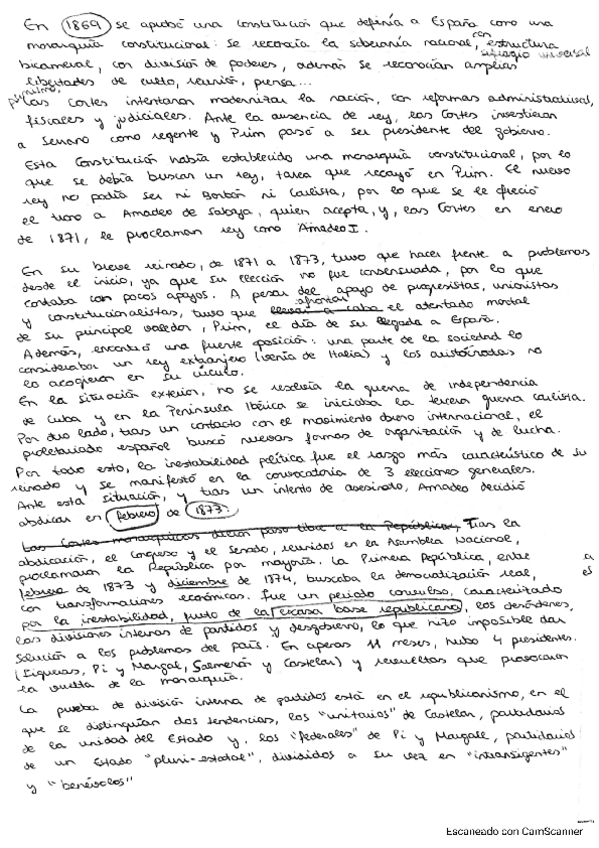 En 1869 se aprobó una constitución que definía a España como una
monarquía constitucional: se reconocía la soberanía nacional, con estructura
bicameral, con división de poderes, además se reconocían amplias sufragio universal
libertades de culto, reunión, prensa...
Las Cortes intentaron modernizar la nación, con reformas administrativas,
fiscales y judiciales. Ante la ausencia de rey, las Cortes invistieron
a Serrano como regente y Prim pasó a ser presidente del gobierno.
Esta Constitución había establecido una monarquía constitucional, por lo
que se debía buscar un rey, tarea que recayó en Prim. El nuevo
rey no podía ser ni Borbón ni Carlista, por lo que se le ofreció
el trono a Amadeo de Saboya, quien acepta, y, las Cortes en enero
de 1871, le proclaman rey como Amadeo I.
En su breve reinado, de 1871 a 1873, tuvo que hacer frente a problemas
desde el inicio, ya que su elección no fue consensuada, por lo que
contaba con pocos apoyos. A pesar del apoyo de progresistas, unionistas
y constitucionalistas, tuvo que llevar a cabo afrontar el atentado mortal
de su principal valedor, Prim, el día de su llegada a España.
Además, encontró una fuerte oposición: una parte de la sociedad lo
consideraba un rey extranjero (venía de Italia) y los aristócratas no
lo acogieron en su círculo.
En la situación exterior, no se resolvía la guerra de independencia
de Cuba y en la Península Ibérica se iniciaba la tercera guerra carlista.
Por otro lado, tras un contacto con el movimiento obrero internacional, el
proletariado español buscó nuevas formas de organización y de lucha.
Por todo esto, la inestabilidad política fue el rasgo más característico de su
reinado y se manifestó en la convocatoria de 3 elecciones generales.
Ante esta situación, y tras un intento de asesinato, Amadeo decidió
abdicar en febrero de 1873.
Las Cortes monárquicas dieron paso libre a la República. Tras la
abdicación, el Congreso y el Senado, reunidos en la Asamblea Nacional,
proclamaron la República por mayoría. La Primera República, entre
febrero de 1873 y diciembre de 1874, buscaba la democratización real,
con transformaciones económicas. Fue un periodo convulso, caracterizado
por la inestabilidad, fruto de la escasa base republicana, los desórdenes,
las divisiones internas de partidos y desgobierno, lo que hizo imposible dar
solución a los problemas del país. En apenas 11 meses, hubo 4 presidentes.
(Figueras, Pi y Margal, Salmerón y Castelar) y revueltas que provocaron
la vuelta de la monarquía.
La prueba de división interna de partidos está en el republicanismo, en el
que se distinguían dos tendencias, los "unitarios" de Castelar, partidarios
de la unidad del Estado y, los "federales" de Pi y Margall, partidarios
de un Estado "pluri-estatal", divididos a su vez en "intransigentes"
y "benévolos"
Escaneado con CamScanner